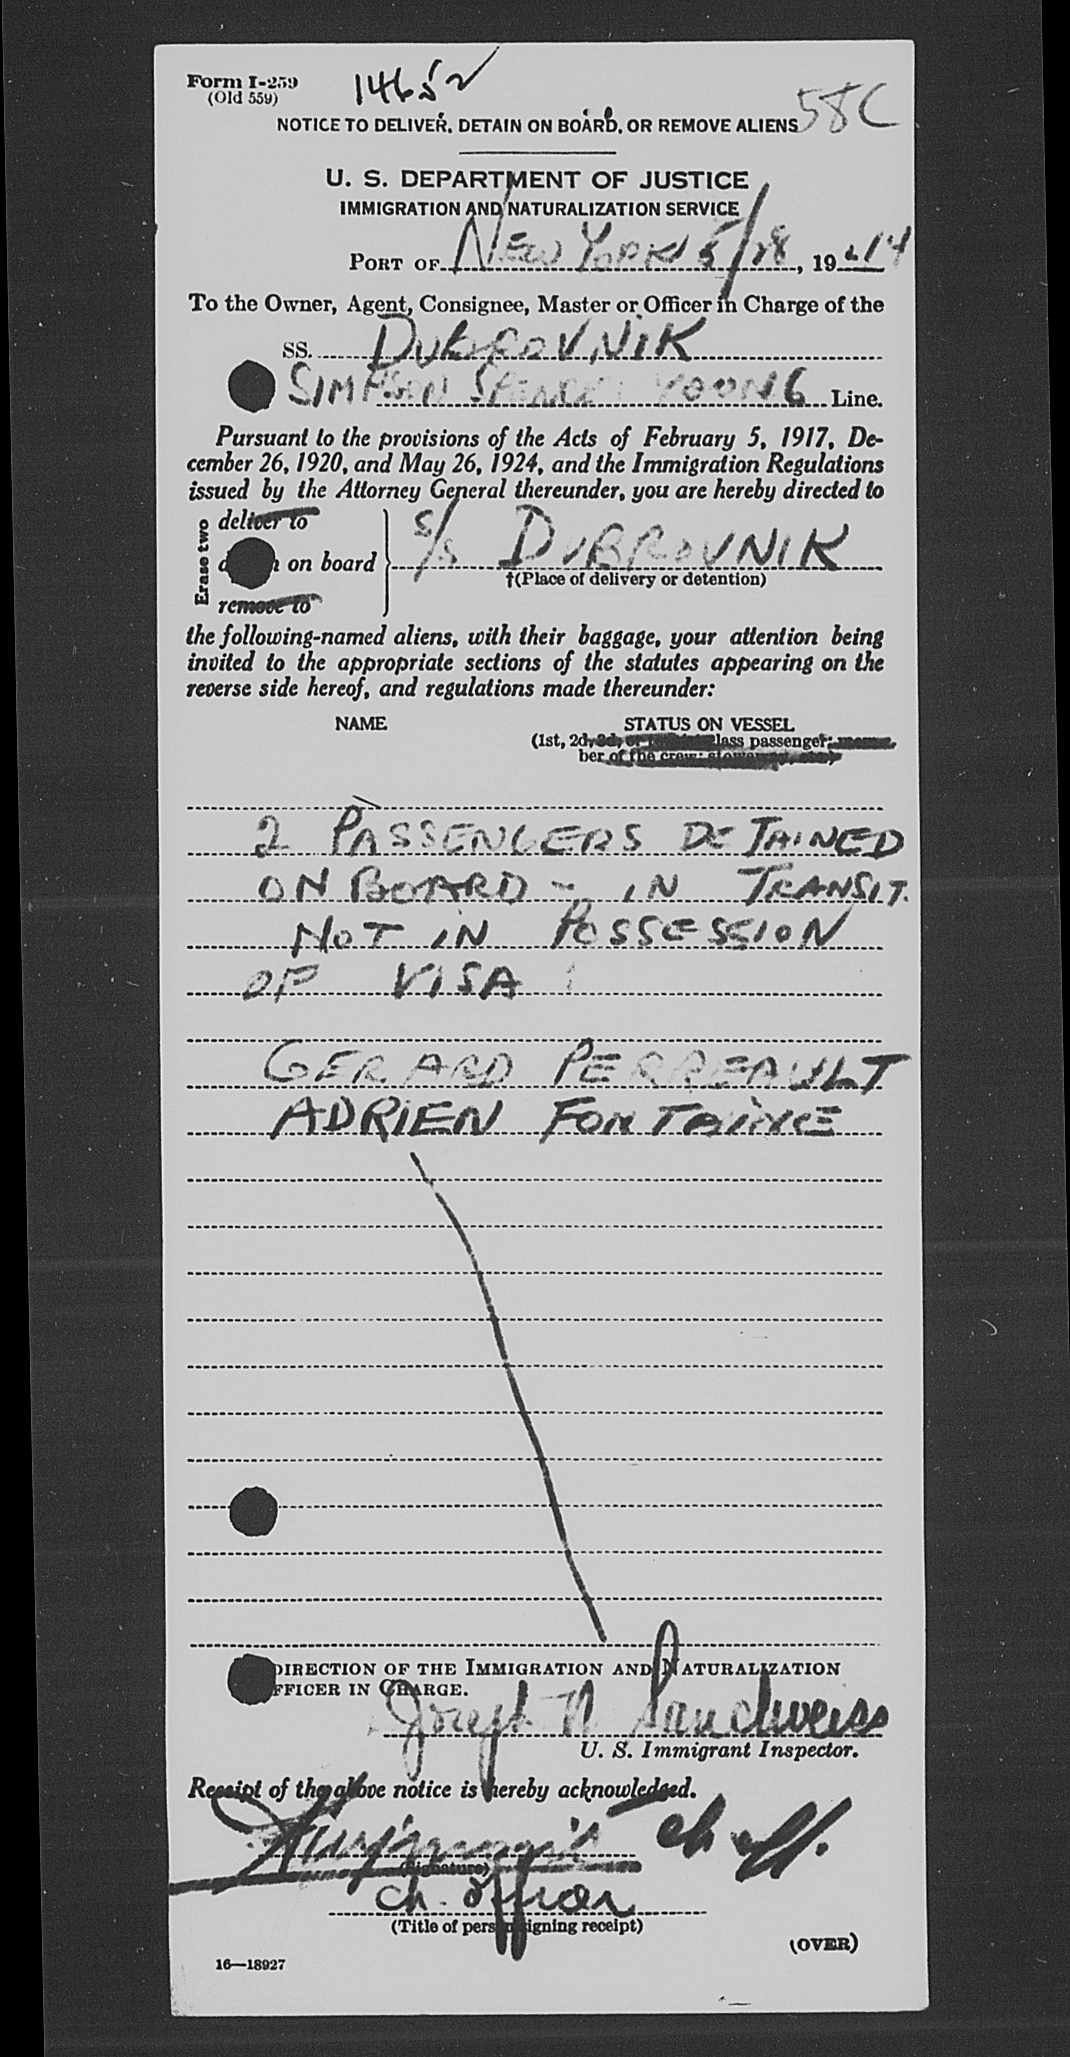 Form I-259
(Old 559)
14652
58C
NOTICE TO DELIVER, DETAIN ON BOARD, OR REMOVE ALIENS
U. S. DEPARTMENT OF JUSTICE
IMMIGRATION AND NATURALIZATION SERVICE
PORT OF NEW YORK 5/28, 19
To the Owner, Agent, Consignee, Master or Officer in Charge of the
SS. DUBROVNIK
SIMPSON SPENCE YOONG Line.
Pursuant to the provisions of the Acts of February 5, 1917, De-
cember 26, 1920, and May 26, 1924, and the Immigration Regulations
issued by the Attorney General thereunder, you are hereby directed to
Erase two
deliver to
on board S/S DUBROVNIK
†(Place of delivery or detention)
remove to
the following-named aliens, with their baggage, your attention being
invited to the appropriate sections of the statutes appearing on the
reverse side hereof, and regulations made thereunder:
NAME STATUS ON VESSEL
(1st, 2d, 3d, or class passenger;
ber of the crew; stowaway,
2 PASSENGERS DETAINED
ON BOARD - IN TRANSIT.
NOT IN POSSESSION
OF VISA
GERARD PERREAULT
ADRIEN FONTAINE
DIRECTION OF THE IMMIGRATION AND NATURALIZATION
OFFICER IN CHARGE.
Joseph N Sandweiss
U. S. Immigrant Inspector.
Receipt of the above notice is hereby acknowledged.
ch off.
(Signature)
Ch. officer
(Title of person signing receipt)
(OVER)
16—18927